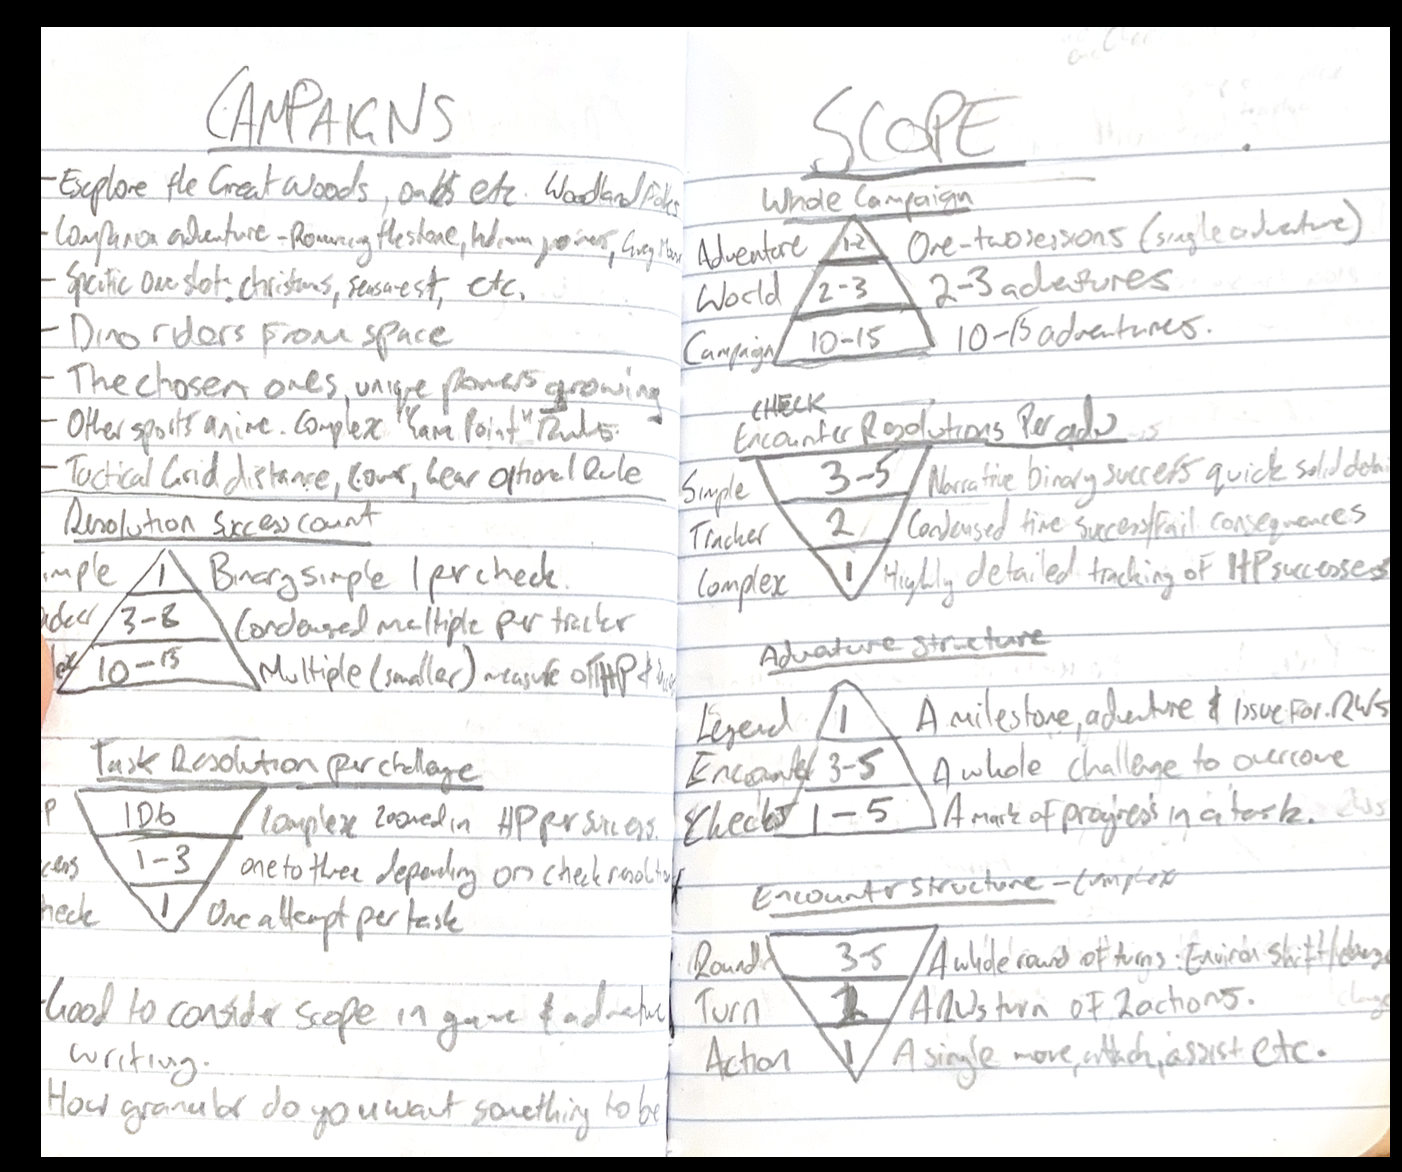 CAMPAIGNS
- Explore the Great Woods, etc. Woodland Folks
- Companion adventure -
- Specific one shot: christmas, etc.
- Dino riders from space
- The chosen ones, unique powers growing
- Other sports anime. Complex "Game Point" Rules.
- Tactical Grid distance, cover, Gear optional Rule
Resolution Success count
imple 1 Binary simple 1 per check.
3-8 Condensed multiple per tracker
10-15 Multiple (smaller) measure of HP &
Task Resolution per challenge
P 1D6 Complex zoomed in HP per success.
cess 1-3 one to three depending on check resoluti
heck 1 One attempt per task
- Good to consider scope in game & adventure
writing.
How granular do you want something to be
SCOPE
Whole Campaign
Adventure 1-2 One-two sessions (single adventure)
World 2-3 2-3 adventures
Campaign 10-15 10-15 adventures.
CHECK
Encounter Resolutions Per adv
Simple 3-5 Narrative binary success quick solid detai
Tracker 2 Condensed time success/fail consequences
Complex 1 Highly detailed tracking of HP successes
Adventure structure
Legend 1 A milestone, adventure & Issue For. RWs
Encounter 3-5 A whole challenge to overcome
Checks 1-5 A mark of progress in a task.
Encounter structure - Complex
Round 3-5 A whole round of turns. Environ shift/change
Turn A RWs turn of 2 actions.
Action 1 A single move, attack, assist etc.